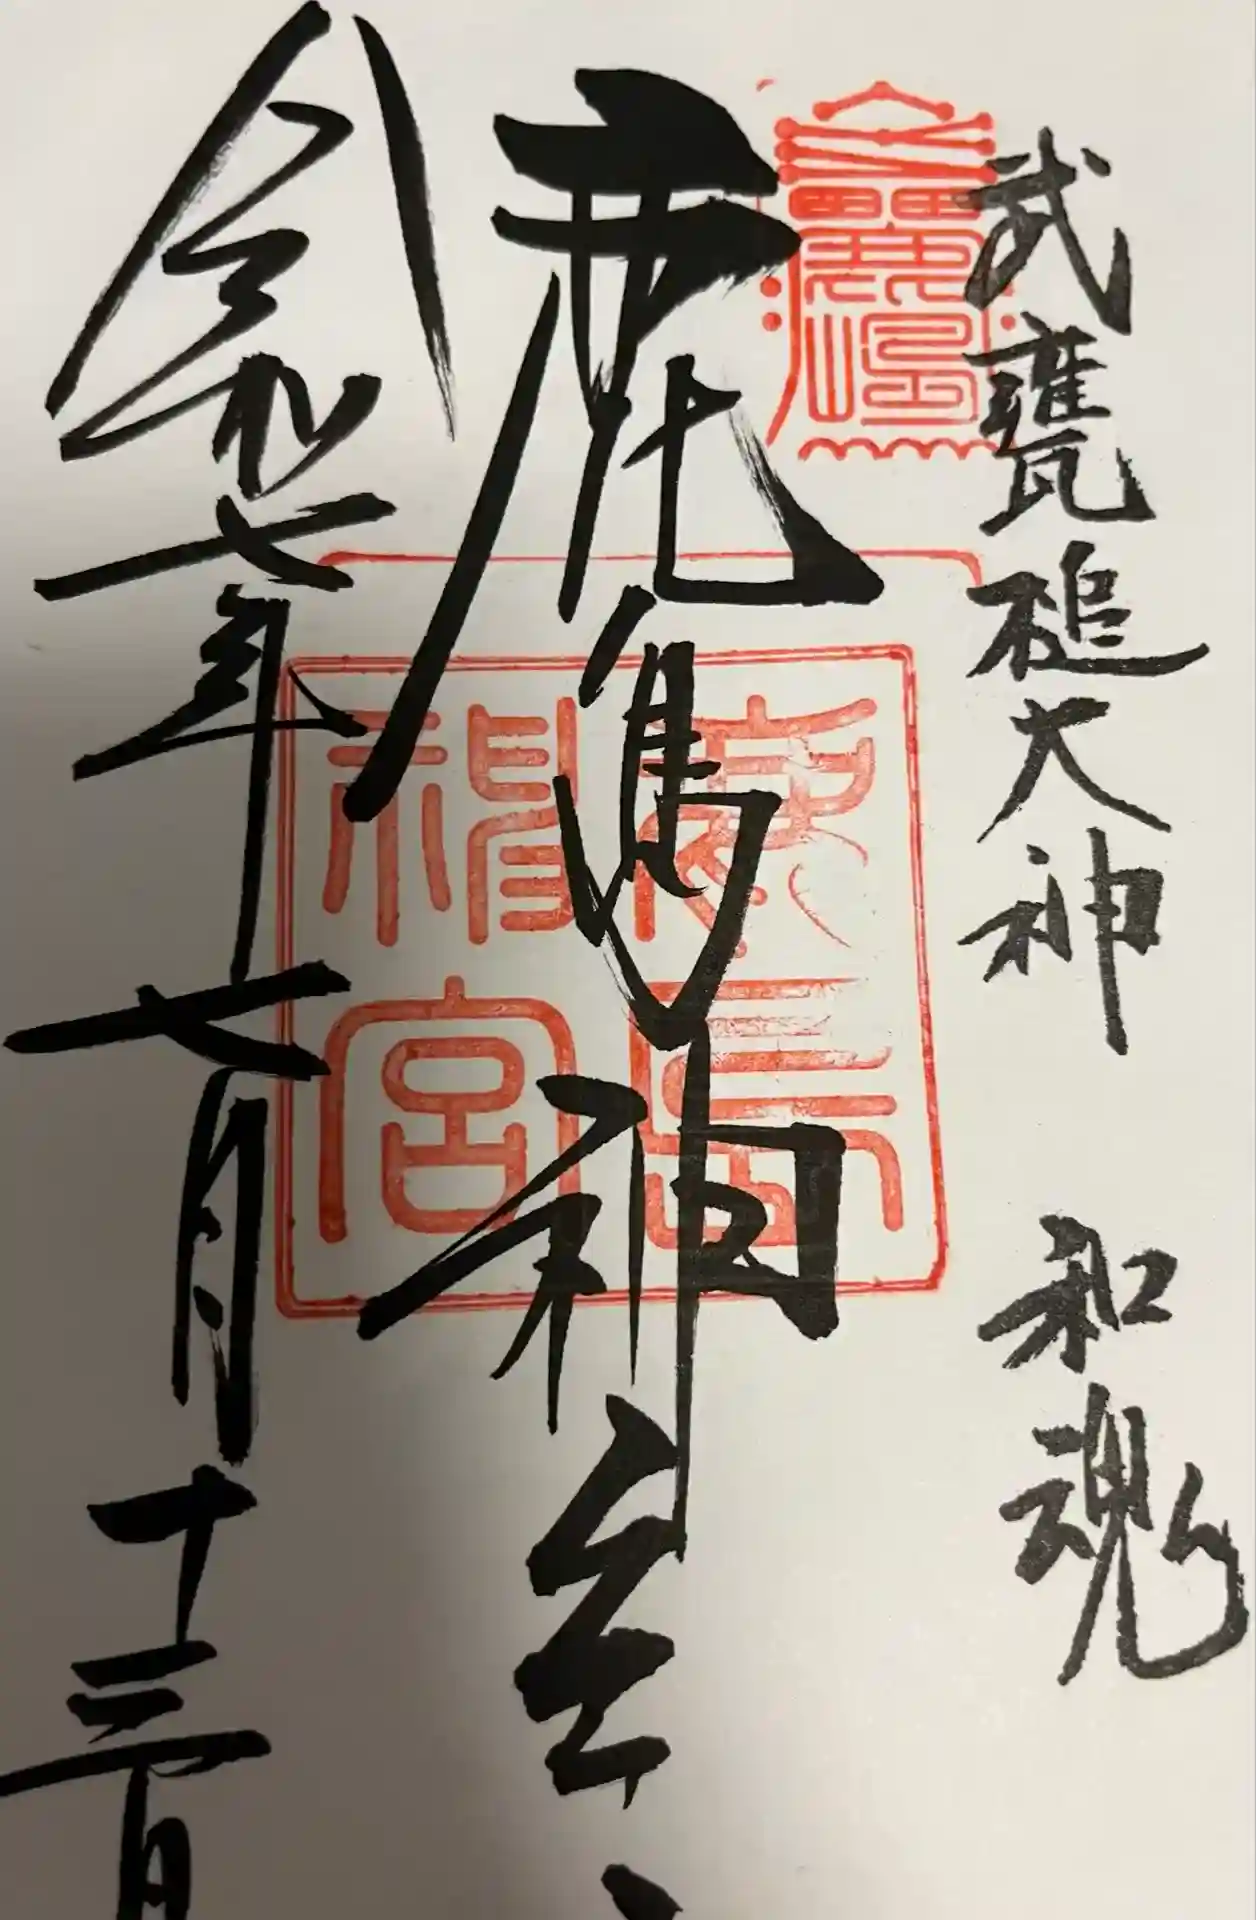 武甕槌大神 和魂
鹿島神
鹿島
神宮
令和七年七月十三日